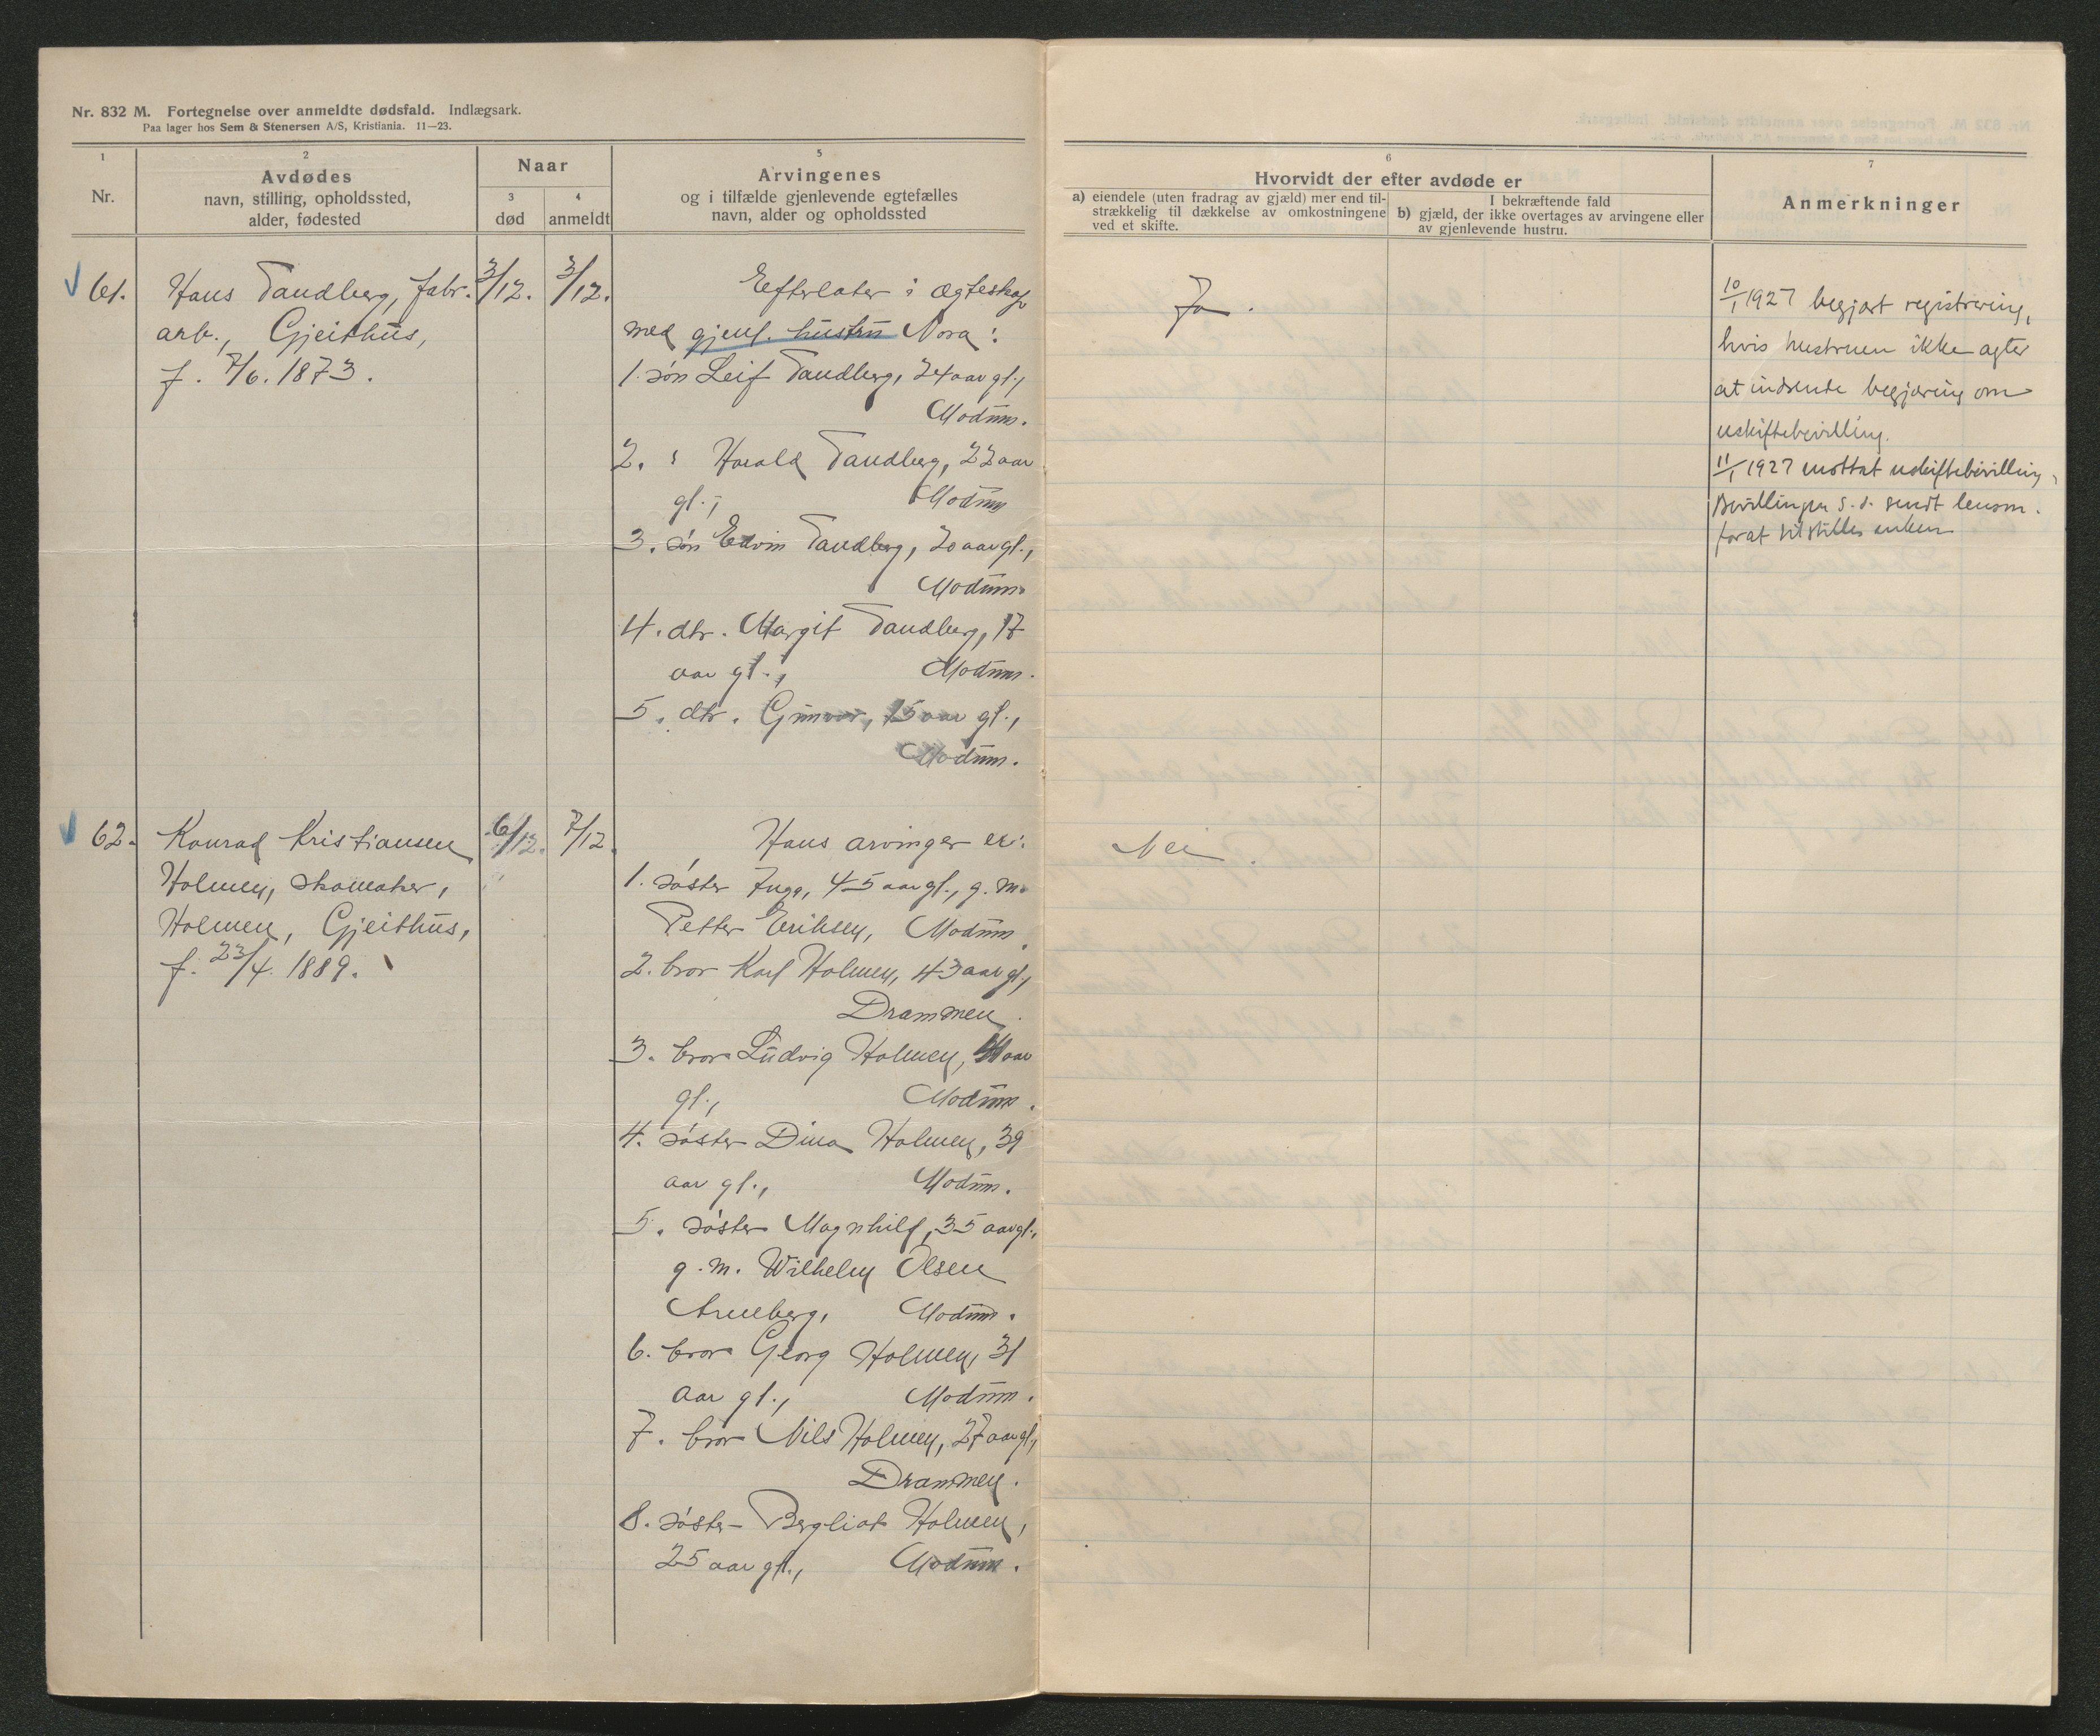 Nr. 832 M. Fortegnelse over anmeldte dødsfald. Indlægsark.
Paa lager hos Sem & Stenersen A/S, Kristiania. 11—23.
1
Nr.
2
Avdødes
navn, stilling, opholdssted,
alder, fødested
Naar
3
død
4
anmeldt
5
Arvingenes
og i tilfælde gjenlevende egtefælles
navn, alder og opholdssted
6
Hvorvidt der efter avdøde er
a) eiendele (uten fradrag av gjæld) mer end til-
strækkelig til dækkelse av omkostningene
ved et skifte.
I bekræftende fald
b) gjæld, der ikke overtages av arvingene eller
av gjenlevende hustru.
7
Anmerkninger
61.
Hans Tandberg, fabr.
arb., Gjeithus,
f. 7/6. 1873.
3/12.
3/12.
Efterlater i ægteskap
med gjenl. hustru Nora:
1. søn Leif Tandberg, 24 aar gl.,
Modum.
2. " Harald Tandberg, 22 aar
gl., Modum
3. søn Edvin Tandberg, 20 aar gl.,
Modum.
4. dtr. Margit Tandberg, 17
aar gl., Modum.
5. dtr. Gunvor, 15 aar gl.,
Modum.
Ja.
10/1 1927 begjært registrering,
hvis hustruen ikke agter
at indsende begjæring om
uskiftebevilling.
11/1 1927 mottat uskiftebevilling.
Bevillingen s. d. sendt lensm.
for at tilstilles enken
62.
Konrad Kristiansen
Holmen, skomaker,
Holmen, Gjeithus,
f. 23/4. 1889.
6/12.
7/12.
Hans arvinger er:
1. søster Inga, 45 aar gl., g. m.
Petter Eriksen, Modum.
2. bror Karl Holmen, 43 aar gl.,
Drammen.
3. bror Ludvig Holmen, 41 aar
gl., Modum.
4. søster Dina Holmen, 39
aar gl., Modum.
5. søster Magnhild, 35 aar gl.,
g. m. Wilhelm Olsen
Arneberg, Modum.
6. bror Georg Holmen, 31
aar gl., Modum.
7. bror Nils Holmen, 27 aar gl.,
Drammen.
8. søster Bergliot Holmen,
25 aar gl., Modum.
Nei.